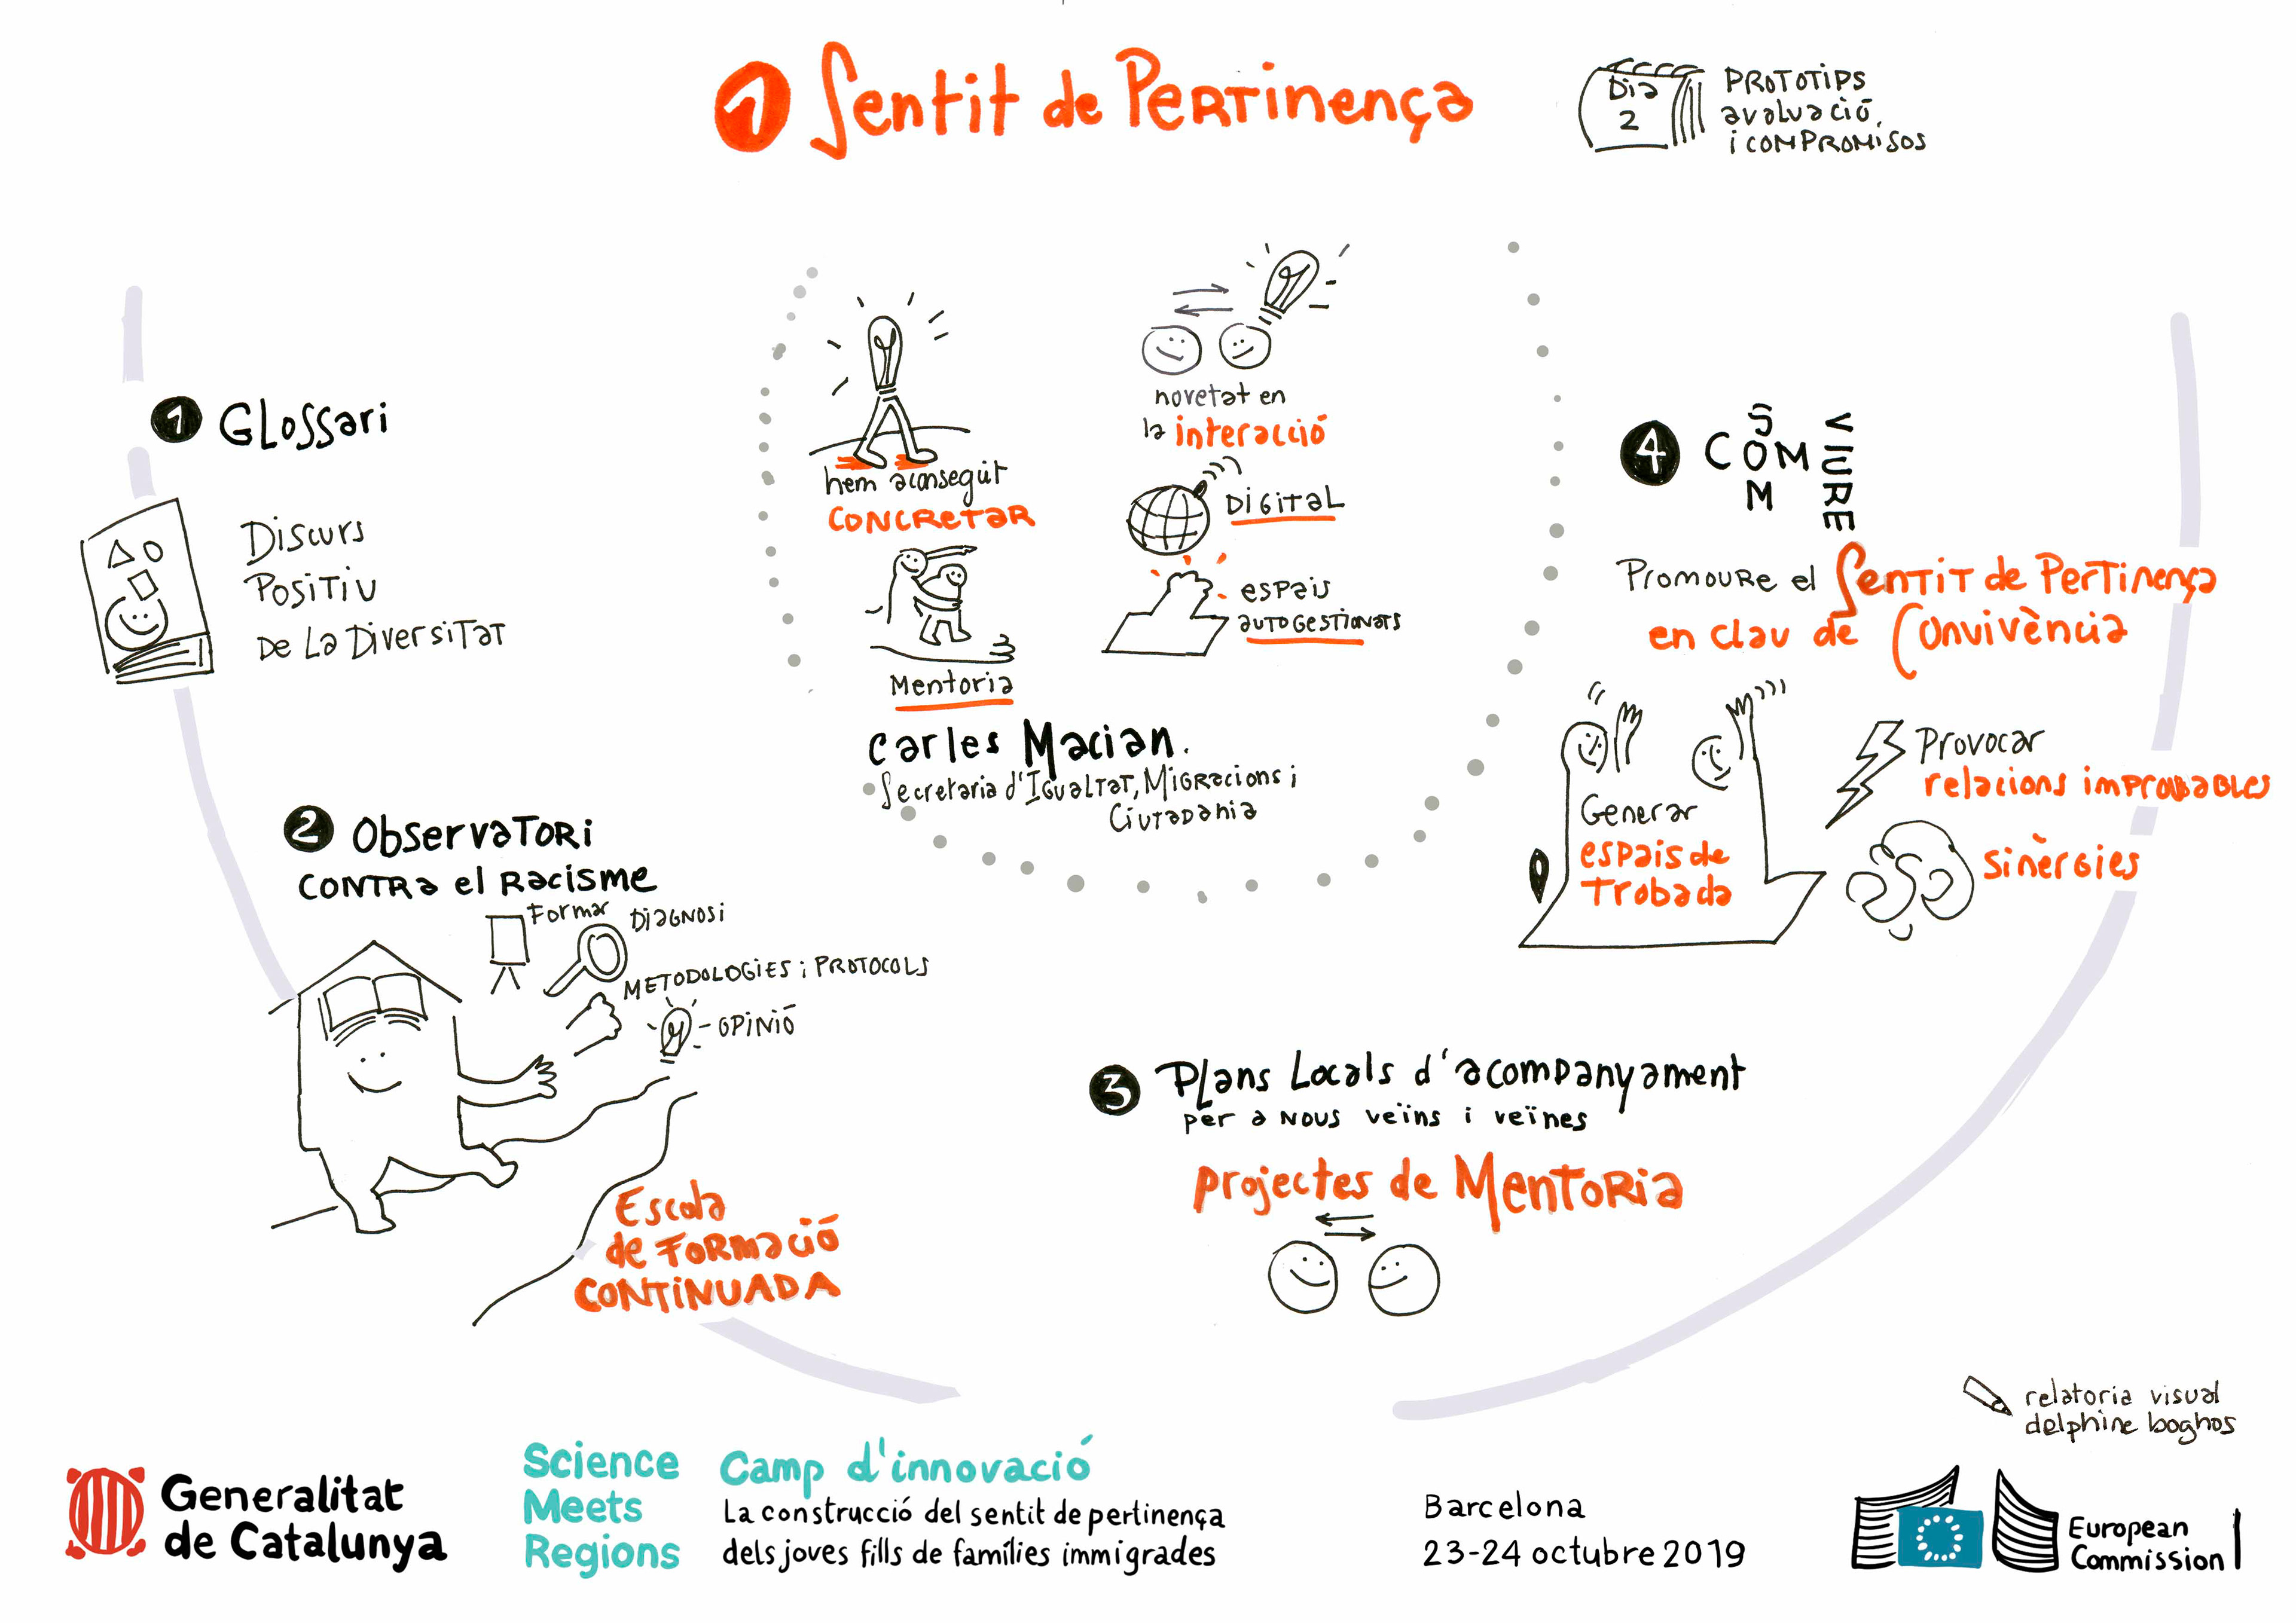 1 Sentit de Pertinença
Dia
2
Prototips
avaluació,
i compromisos
1 Glossari
Discurs
Positiu
de la Diversitat
2 Observatori
contra el Racisme
Formar
Diagnosi
Metodologies i Protocols
- opinió
Escola
de Formació
Continuada
hem aconsegüt
concretar
Mentoria
novetat en
la interacció
Digital
espais
autogestionats
Carles Macian.
Secretaria d'Igualtat, Migracions i
Ciutadania
3 Plans Locals d'acompanyament
per a nous veïns i veïnes
projectes de Mentoria
4 COM
SOM
VIURE
Promoure el Sentit de Pertinença
en clau de Convivència
Generar
espais de
trobada
Provocar
relacions improbables
sinèrgies
relatoria visual
delphine boghos
Generalitat
de Catalunya
Science
Meets
Regions
Camp d'innovació
La construcció del sentit de pertinença
dels joves fills de famílies immigrades
Barcelona
23-24 octubre 2019
European
Commission